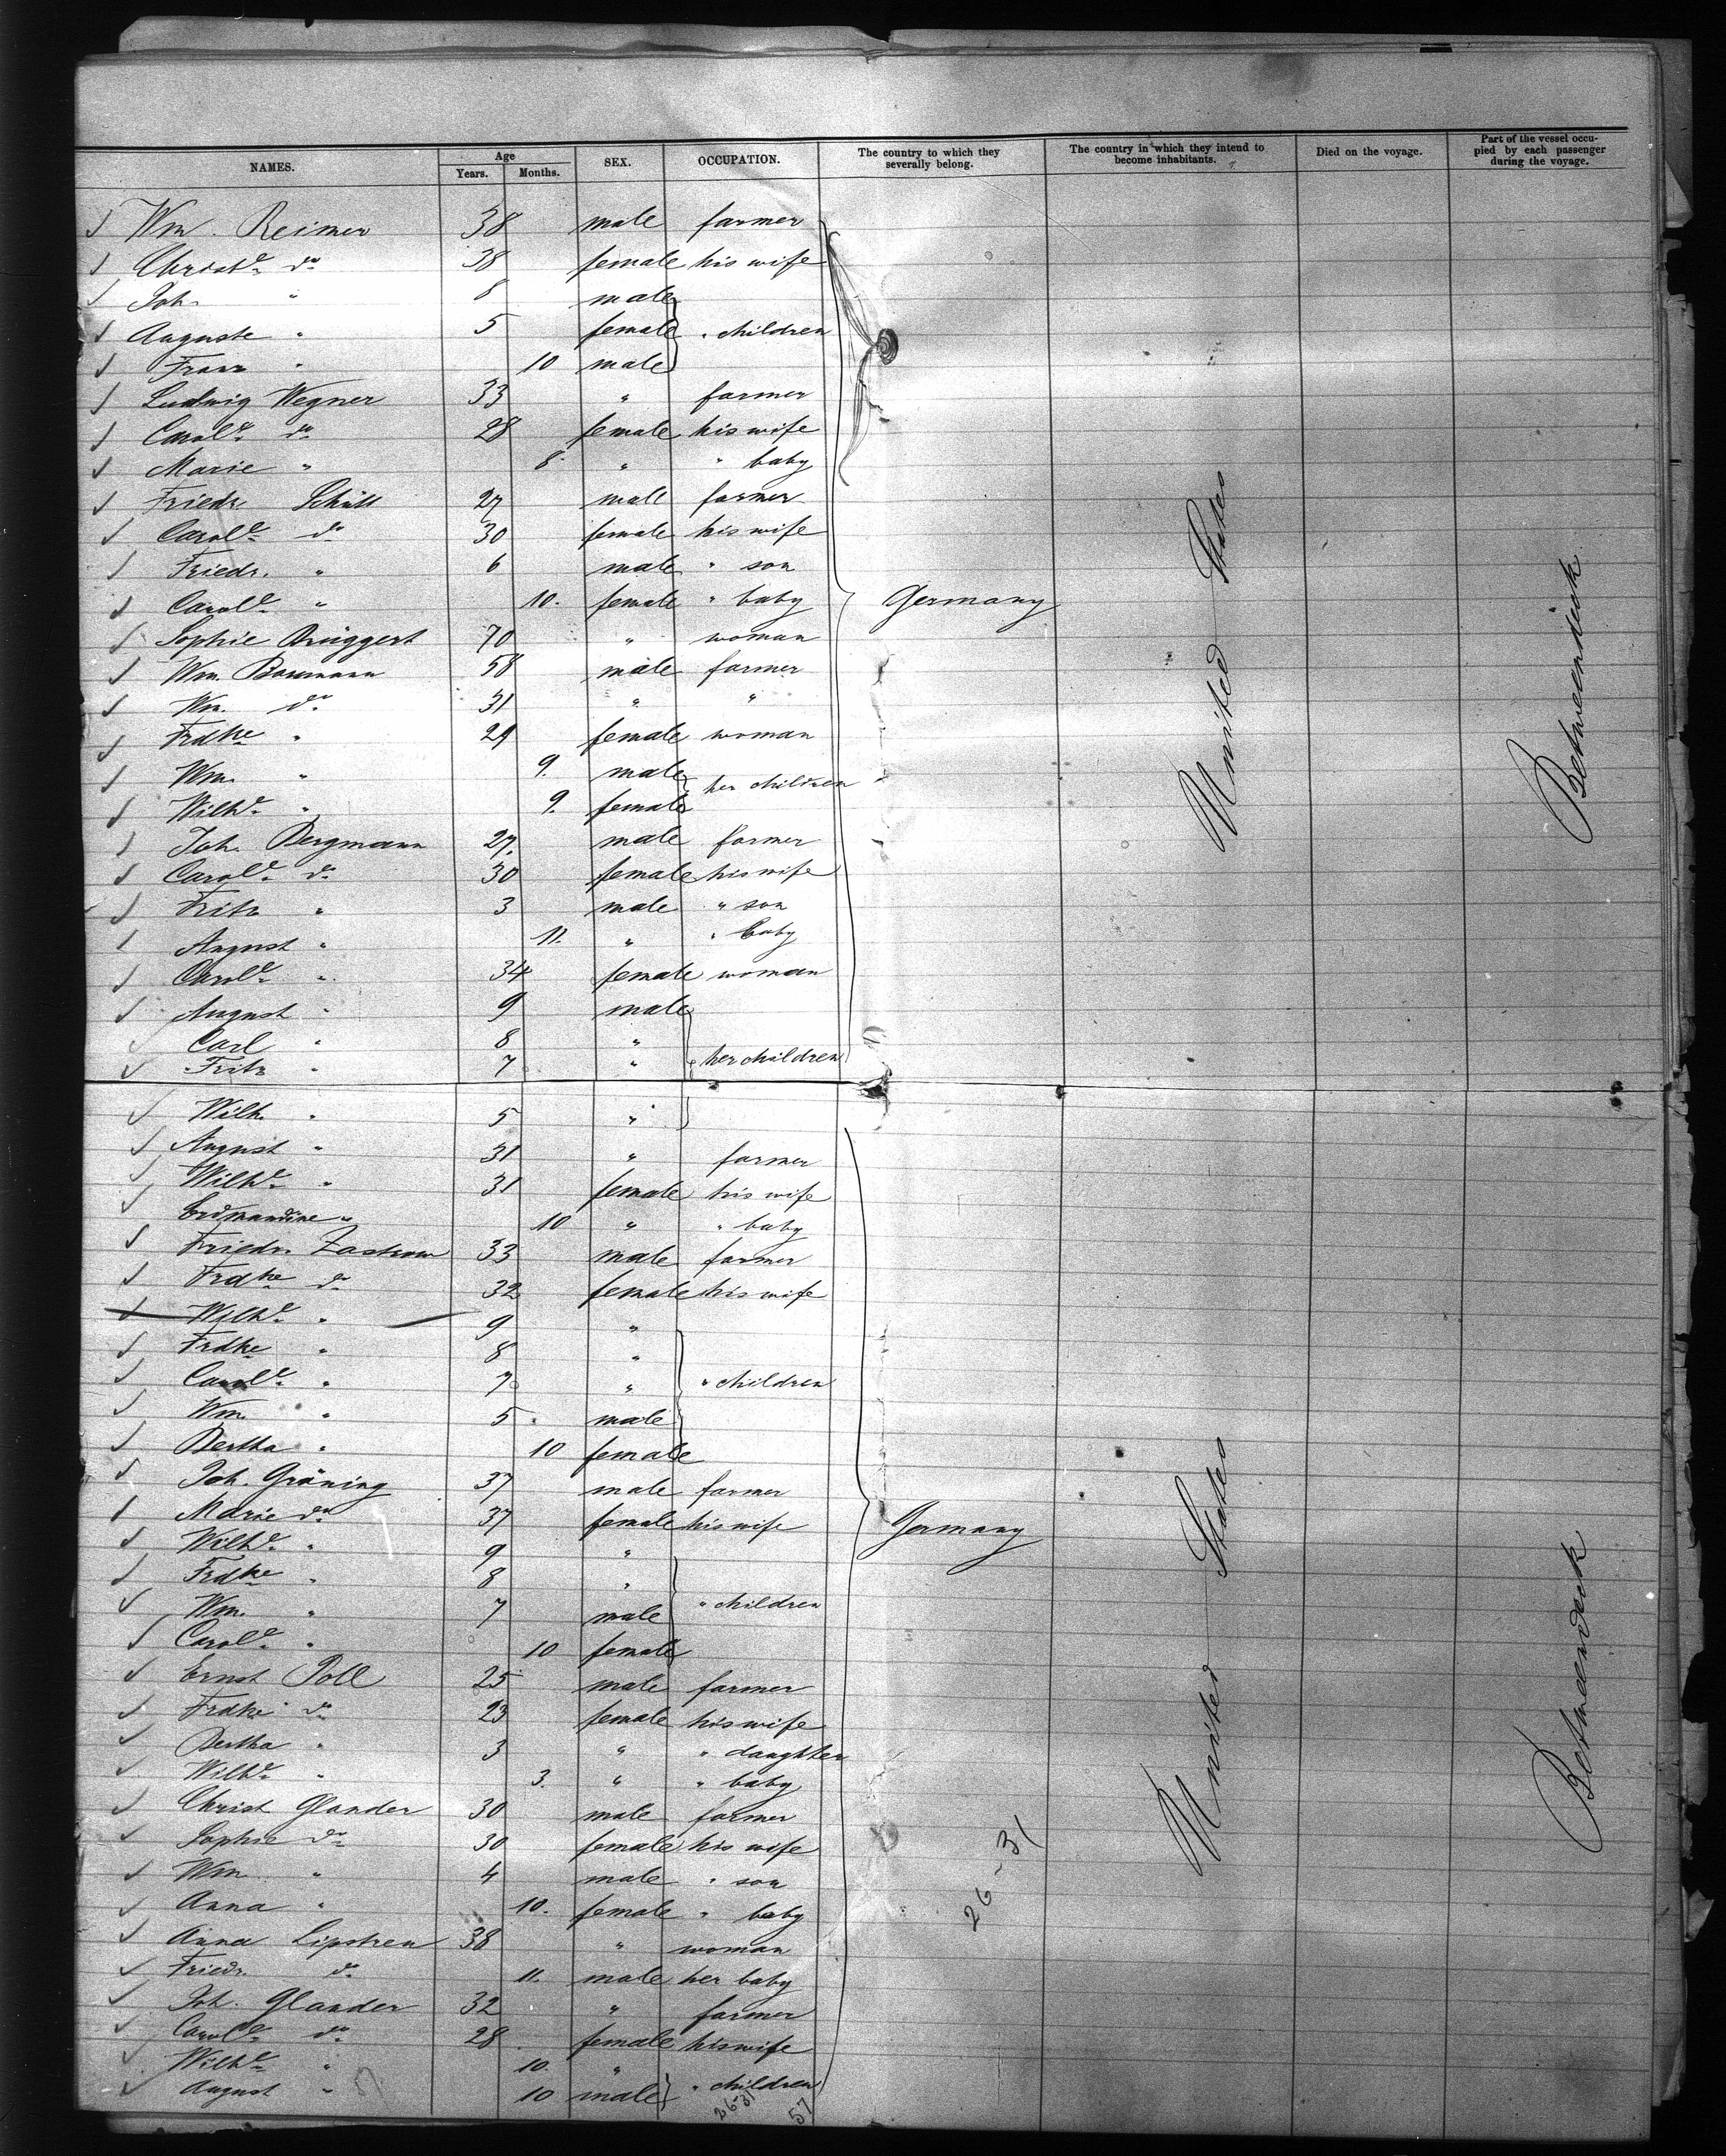 NAMES. Age Years. Months. SEX. OCCUPATION. The country to which they severally belong. The country in which they intend to become inhabitants. Died on the voyage. Part of the vessel occupied by each passenger during the voyage.
Wm. Reimer 38 male farmer
Christe. do 38 female his wife
Joh. " 8 male
Auguste " 5 female " children
Franz " 10 male
Ludwig Wegner 33 " farmer
Carole. do 28 female his wife
Marie " 8 " " baby
Friedr. Schütt 27 male farmer
Carole. do 30 female his wife
Friedr. " 6 male " son
Carole. " 10. female " baby Germany United States Betweendeck
Sophie Brüggert 70 " woman
Wm. Bowmann 58 male farmer
Wm. do 31 " "
Frdke " 29 female woman
Wm. " 9. male her children
Wilhe. " 9. female
Joh. Bergmann 27. male farmer
Carole. do 30 female his wife
Fritz " 3 male " son
August " 11. " " baby
Carole. " 34 female woman
August " 9 male
Carl " 8 "
Fritz " 7 " her children
Wilh. " 5 "
August " 31 " farmer
Wilhe. " 31 female his wife
Erdmandine " 10 " " baby
Friedr. Zastrow 33 male farmer
Frdke do 32 female his wife
Wilhe. " 9 "
Frdke " 8 "
Carole. " 7 " " children
Wm. " 5 male
Bertha " 10 female
Joh. Gröning 37 male farmer
Marie do 37 female his wife Germany United States Betweendeck
Wilhe. " 9 "
Frdke " 8 "
Wm. " 7 male " children
Carole. " 10 female
Ernst Poll 25 male farmer
Frdke do 23 female his wife
Bertha " 3 " " daughter
Wilhe. " 3. " " baby
Christ Glander 30 male farmer
Sophie do 30 female his wife
Wm. " 4 male " son
Anna " 10. female " baby
26-31
Anna Lipstren 38 " woman
Friedr. do 11. male her baby
Joh. Glander 32 " farmer
Carole. do 28 female his wife
Wilhe. " 10. "
August " 10 male " children
26-31 57